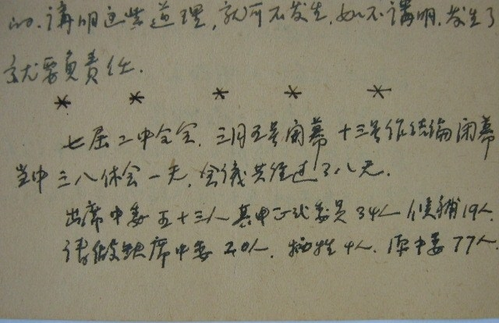 的.講明这些道理,就可不发生,如不講明.发生了
就要負責任.
* * * * *
七届二中全会.三月五号開幕 十三号作结論闭幕
当中三八休会一天.会議共经过了八天.
出席中委五十三人 其中正式委員34人 候補19人
请假缺席中委20人.牺牲4人.原中委77人.